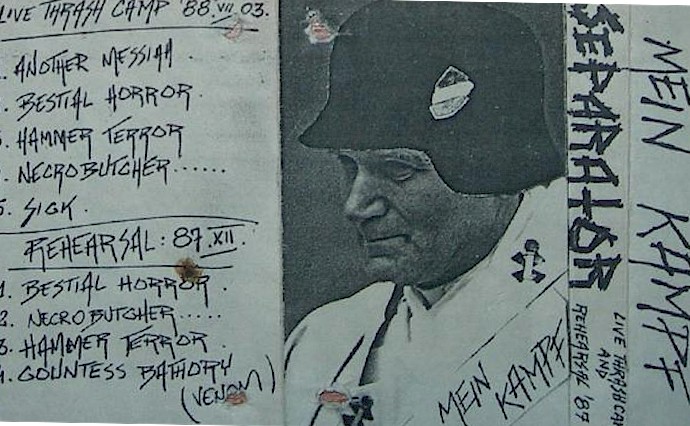 LIVE THRASH CAMP '88.VII.03.
. ANOTHER MESSIAH
. BESTIAL HORROR
. HAMMER TERROR
. NECROBUTCHER......
5. SICK.
REHEARSAL: 87.XII.
1. BESTIAL HORROR.
2. NECROBUTCHER.....
3. HAMMER TERROR.
4. COUNTESS BATHORY
(VENOM)
MEIN
KAMPF
SEPARATOR
LIVE THRASH CA
AND
REHEARSAL '87
MEIN KAMPF